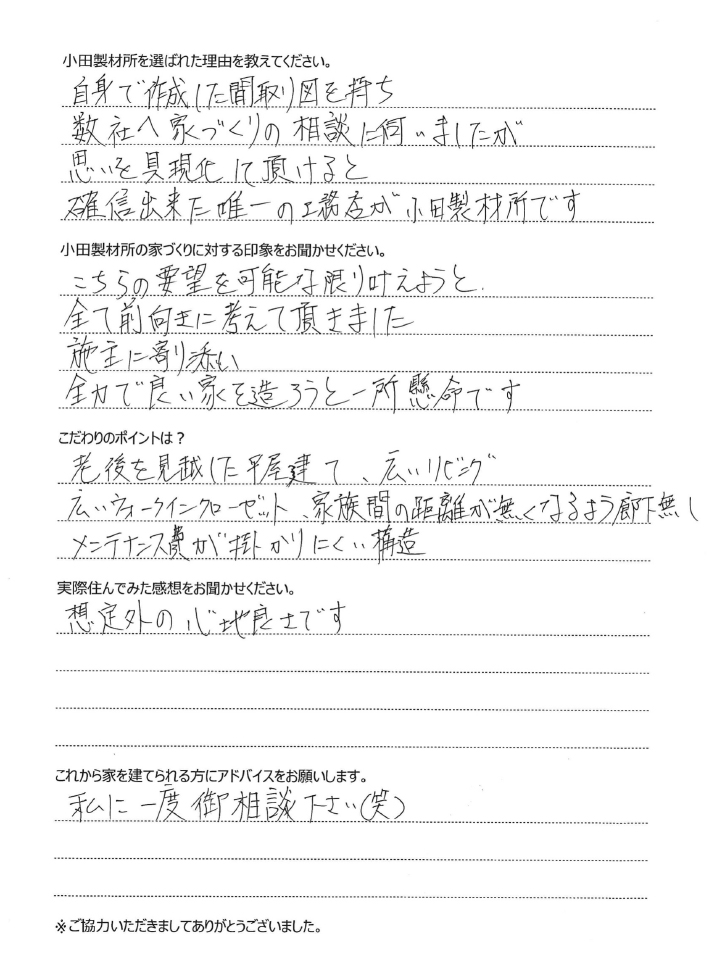 小田製材所を選ばれた理由を教えてください。
自身で作成した間取り図を持ち
数社へ家づくりの相談に伺いましたが
思いを具現化して頂けると
確信出来た唯一の工務店が小田製材所です
小田製材所の家づくりに対する印象をお聞かせください。
こちらの要望を可能な限り叶えようと
全て前向きに考えて頂きました
施主に寄り添い
全力で良い家を造ろうと一所懸命です
こだわりのポイントは？
老後を見越した平屋建て、広いリビング
広いウォークインクローゼット、家族間の距離が無くなるよう廊下無し
メンテナンス費が掛かりにくい構造
実際住んでみた感想をお聞かせください。
想定外の心地良さです
これから家を建てられる方にアドバイスをお願いします。
私に一度御相談下さい(笑)
※ご協力いただきましてありがとうございました。